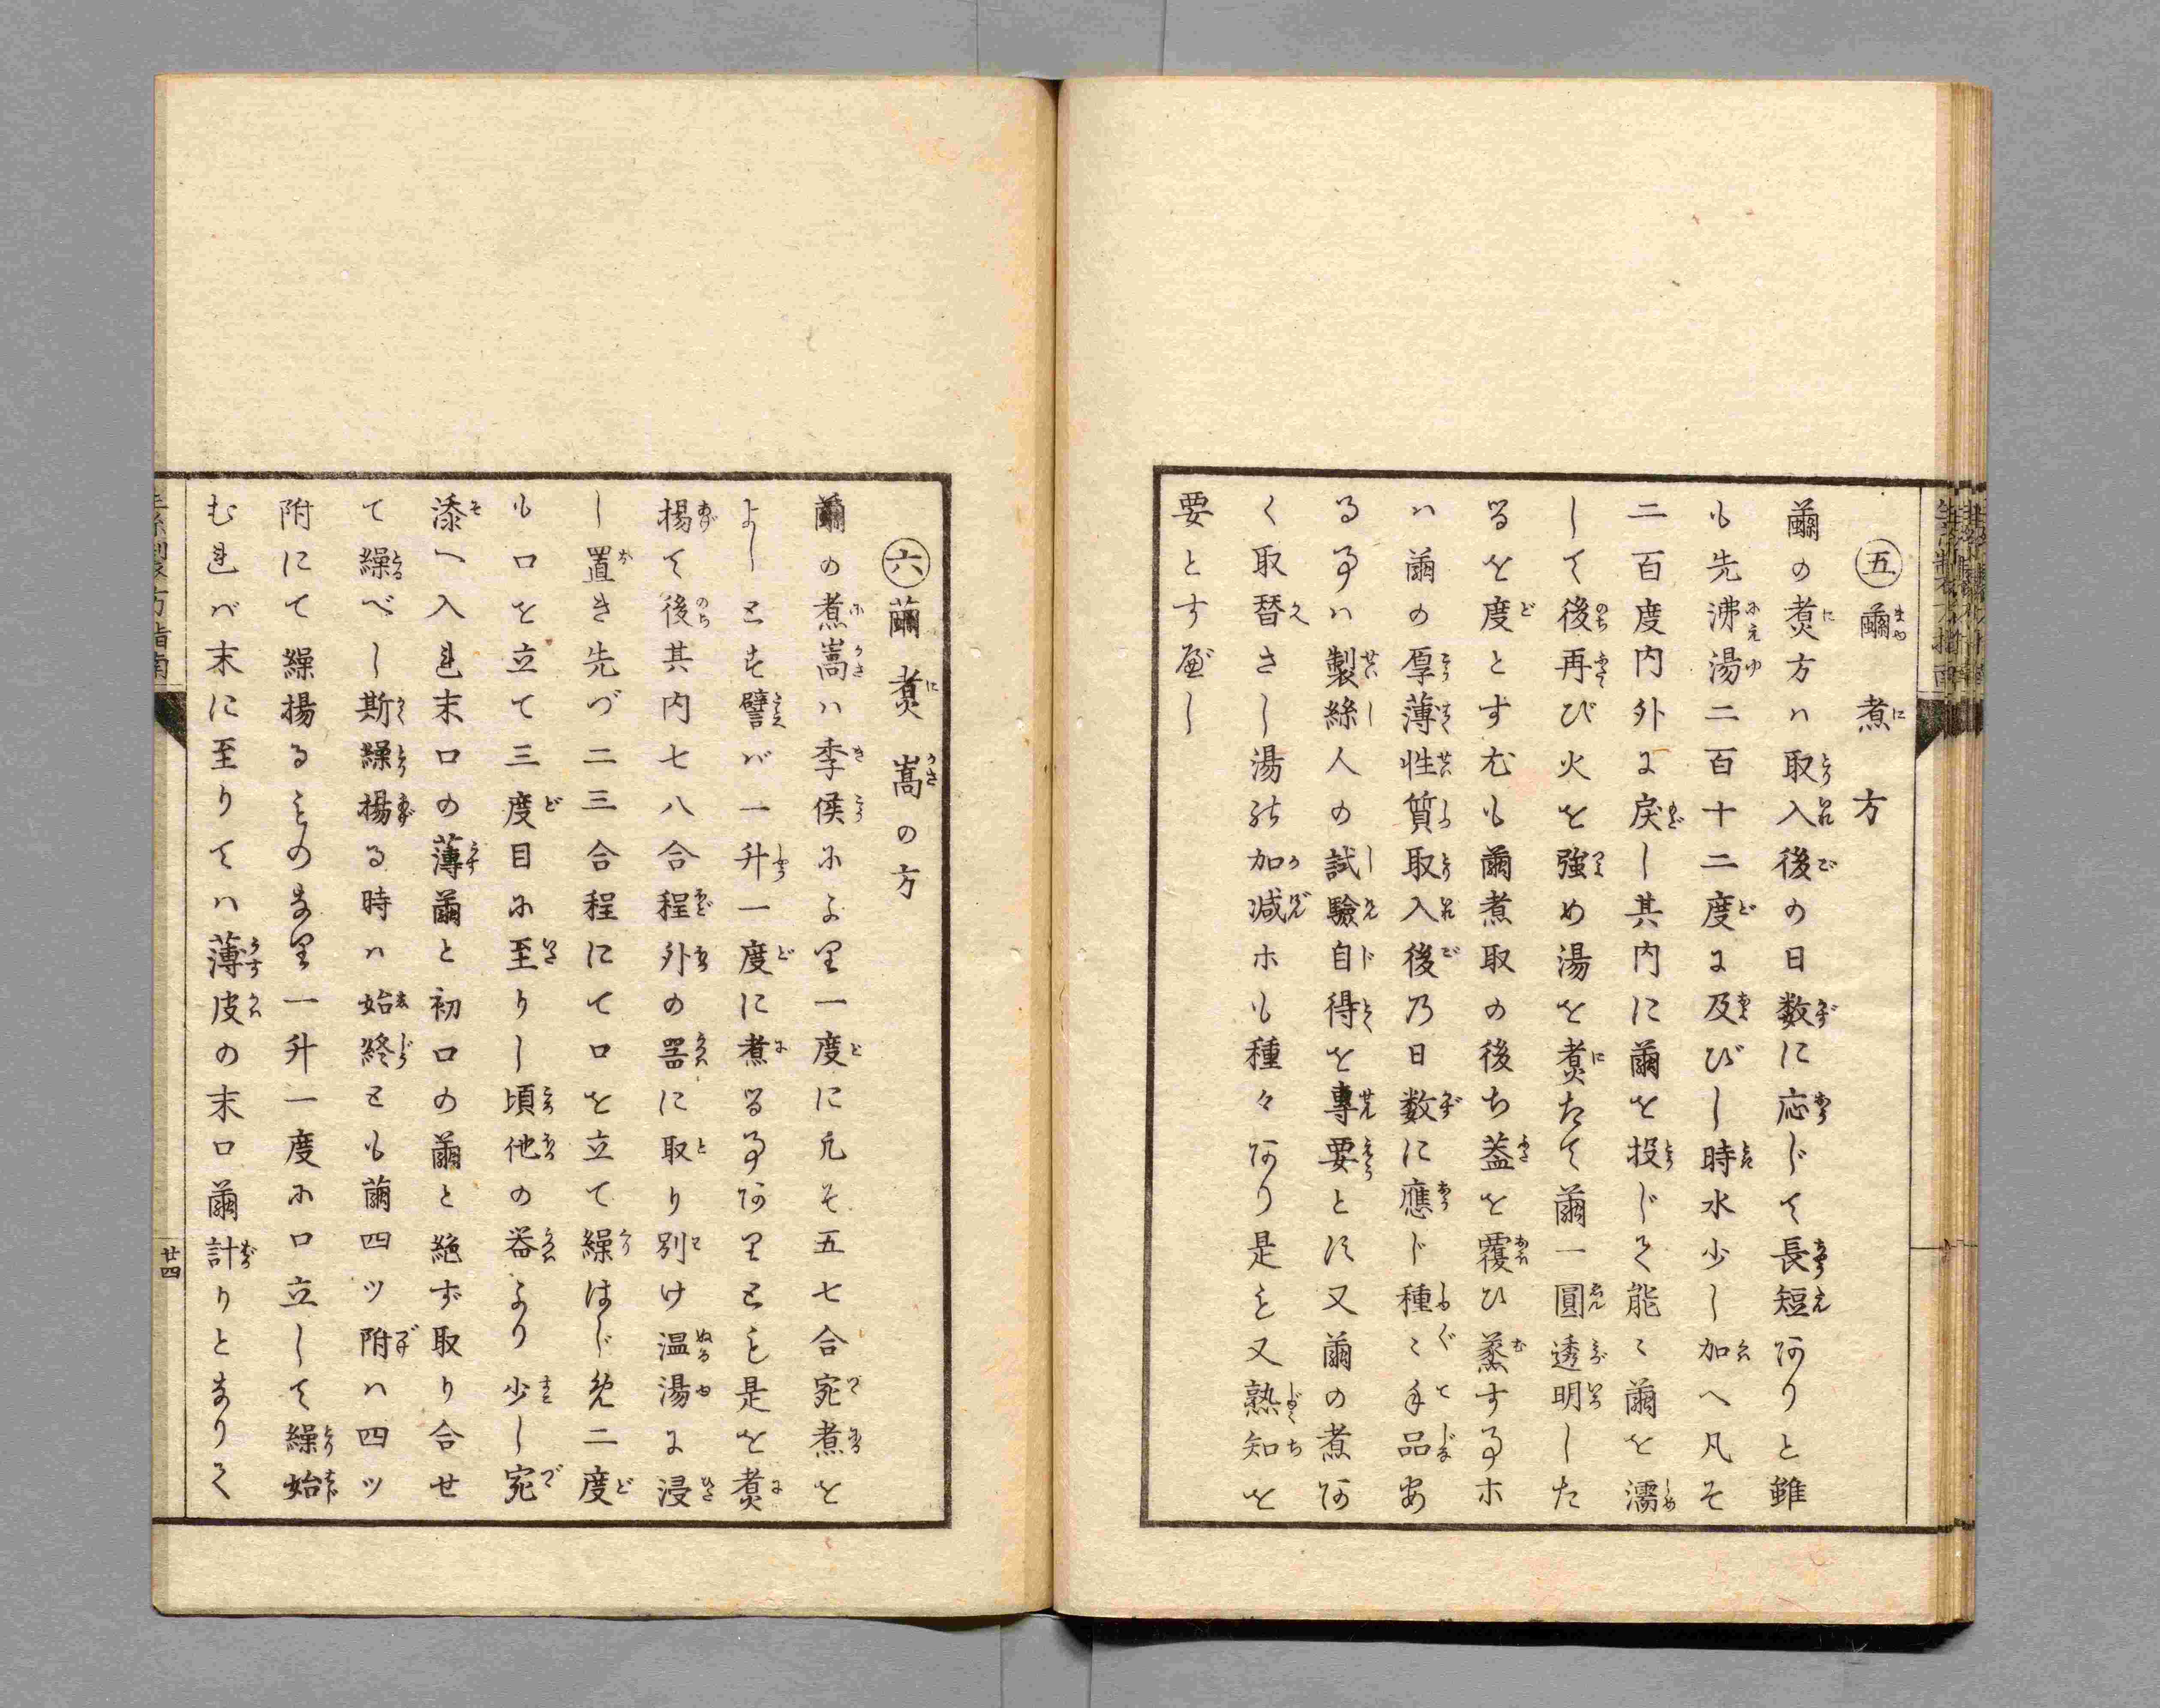 ㊄繭煮方
繭の煑方ハ取入後の日数に応じて長短ありと雖
も先沸湯二百十二度に及びし時水少し加へ凡そ
二百度内外に戻し其内に繭を投じて能〻繭を濡
して後再び火を強め湯を煑たて繭一圓透明した
るを度とす尤も繭煮取の後ち蓋を覆ひ蒸す事ホ
ハ繭の厚薄性質取入後乃日数に應じ種〻手品あ
る事ハ製絲人の試驗自得を專要とす又繭の煮あ
く取替さし湯能加減ホも種々あり是を又熟知を
要とすべし
㊅繭煑嵩の方
繭の煮嵩ハ季候により一度に凡そ五七合宛煮を
よしとす譬バ一升一度に煮る事ありとも是を煑
揚て後其内七八合程外の器に取り別け温湯に浸
し置き先づ二三合程にて口を立て繰はじめ二度
も口を立て三度目に至りし頃他の器より少し宛
添へ入れ末口の薄繭と初口の繭と絶ず取り合せ
て繰べし斯繰揚る時ハ始終とも繭四ツ附ハ四ツ
附にて繰揚るものなり一升一度に口立して繰始
むれバ末に至りてハ薄皮の末口繭計りとなりて
生糸製方指南
廿四